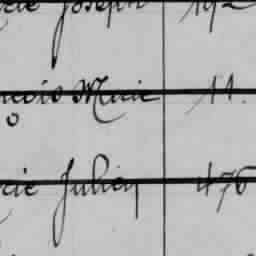 rie Joseph 192
ncois Marie 11.
rie Julien 476